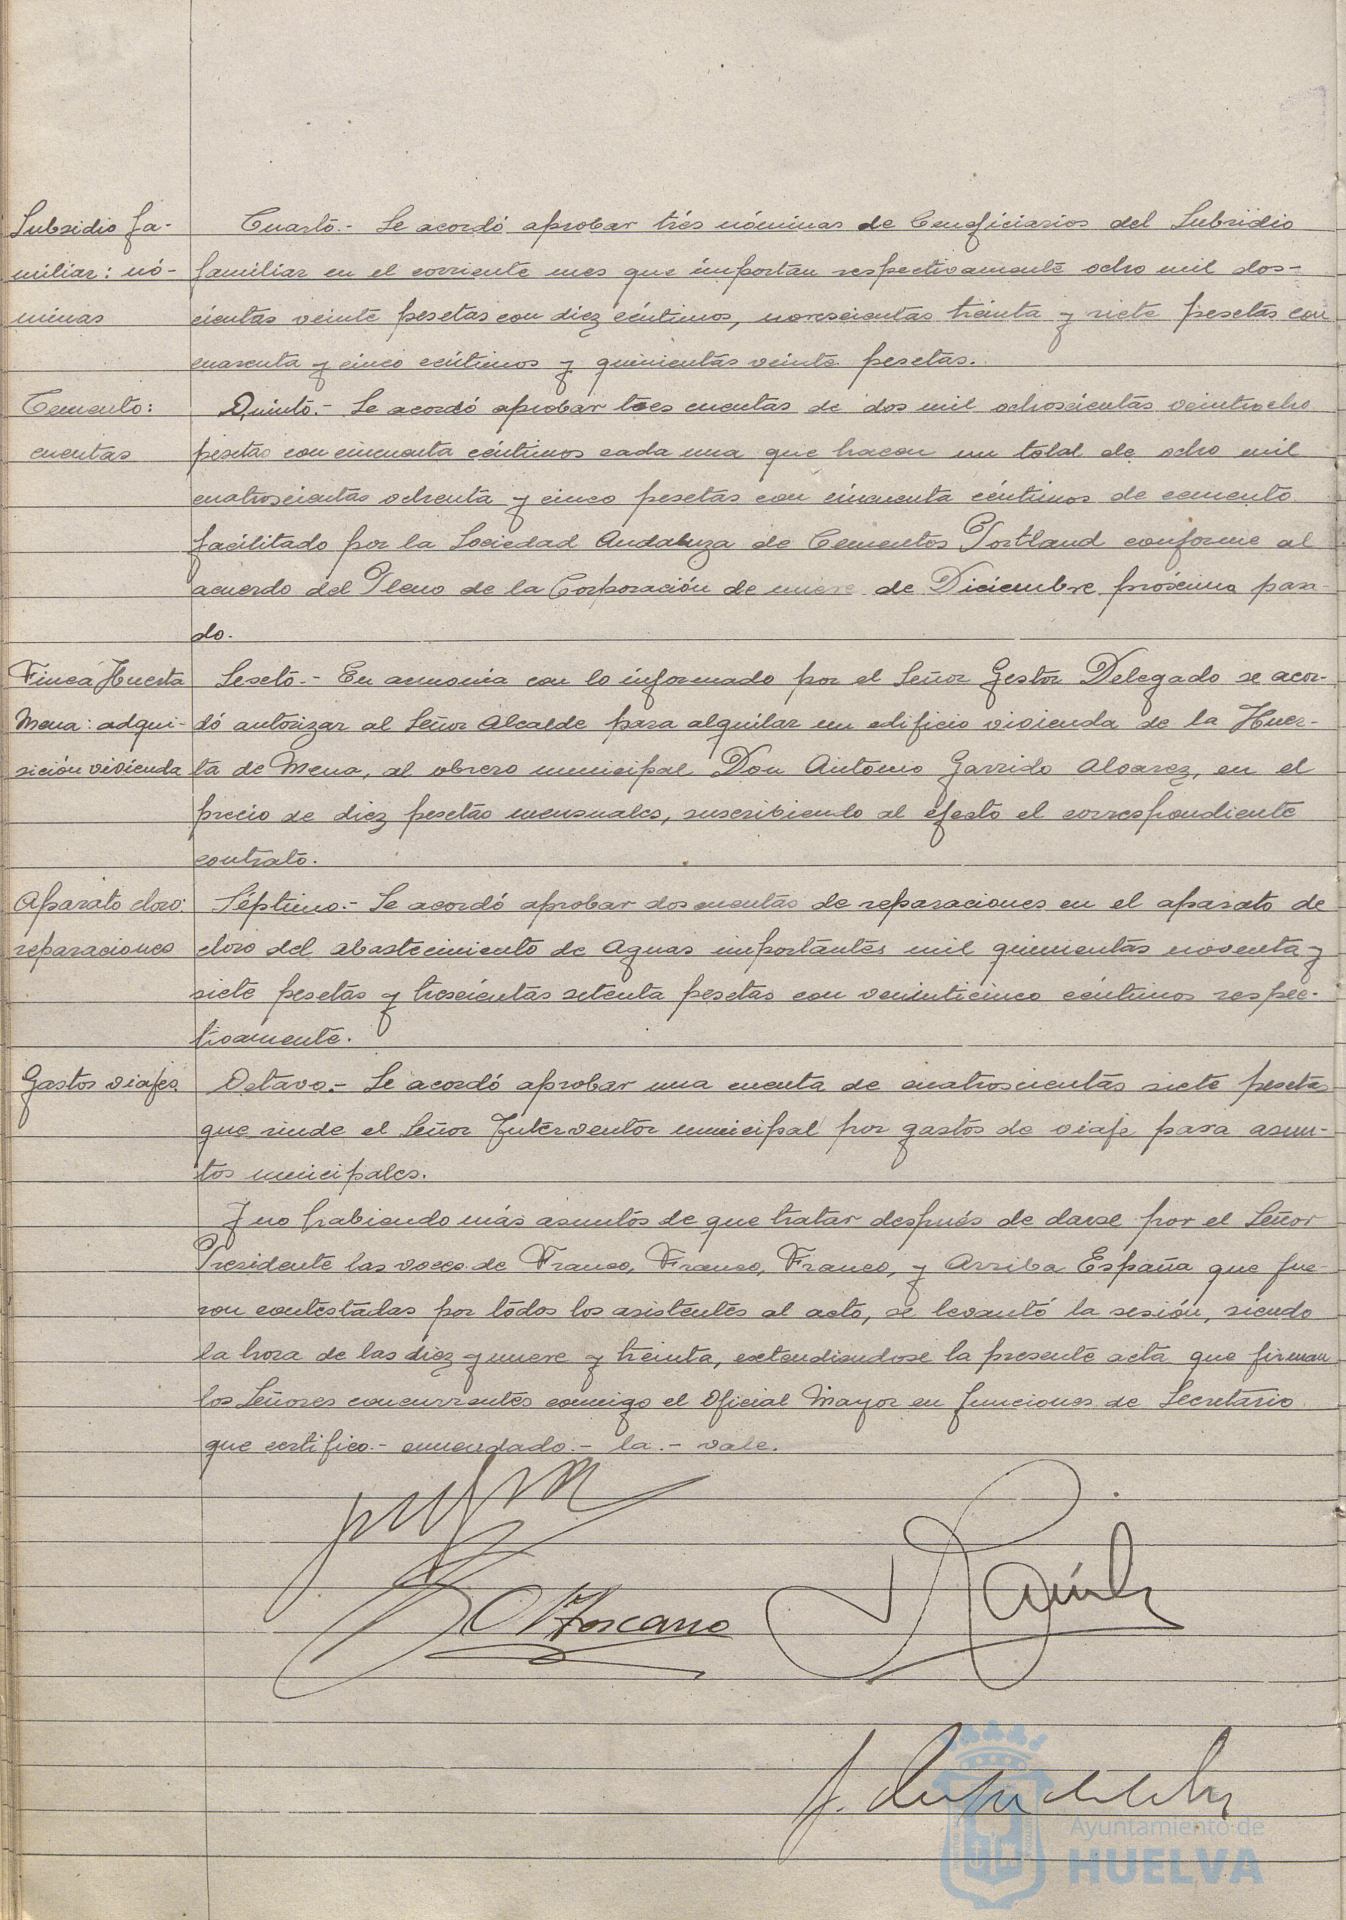 Subsidio fa-
miliar: nó-
minas
Cuarto.- Se acordó aprobar trés nóminas de Beneficiarios del Subsidio
familiar en el corriente mes que importan respectivamente ocho mil dos-
cientas veinte pesetas con diez céntimos, novescientas treinta y siete pesetas con
cuarenta y cinco céntimos y quinientas veinte pesetas.
Cemento:
cuentas
Quinto.- Se acordó aprobar tres cuentas de dos mil ochoscientas veintiocho
pesetas con cincuenta céntimos cada una que hacen un total de ocho mil
cuatroscientas ochenta y cinco pesetas con cincuenta céntimos de cemento
facilitado por la Sociedad Andaluza de Cementos Portland conforme al
acuerdo del Pleno de la Corporación de nueve de Diciembre próximo pasa-
do.
Finca Huerta
Mena: adqui-
sición vivienda
Sexto.- En armonía con lo informado por el Señor Gestor Delegado se acor-
dó autorizar al Señor Alcalde para alquilar un edificio vivienda de la Huer-
ta de Mena, al obrero municipal Don Antonio Garrido Alvarez, en el
precio de diez pesetas mensuales, suscribiendo al efecto el correspondiente
contrato.
Aparato cloro:
reparaciones
Séptimo.- Se acordó aprobar dos cuentas de reparaciones en el aparato de
cloro del abastecimiento de Aguas importantes mil quinientas noventa y
siete pesetas y trescientas setenta pesetas con veninticinco céntimos respec-
tivamente.
Gastos viajes.
Octavo.- Se acordó aprobar una cuenta de cuatroscientas siete pesetas
que rinde el Señor Interventor municipal por gastos de viaje para asun-
tos municipales.
Y no habiendo más asuntos de que tratar después de darse por el Señor
Presidente las voces de Franco, Franco, Franco, y Arriba España que fue-
ron contestadas por todos los asistentes al acto, se levantó la sesión, siendo
la hora de las diez y nueve y treinta, extendiendose la presente acta que firman
los Señores concurrentes conmigo el Oficial Mayor en funciones de Secretario
que certifico.- enmendado.- la.- vale.
Toscano
Ayuntamiento de
HUELVA